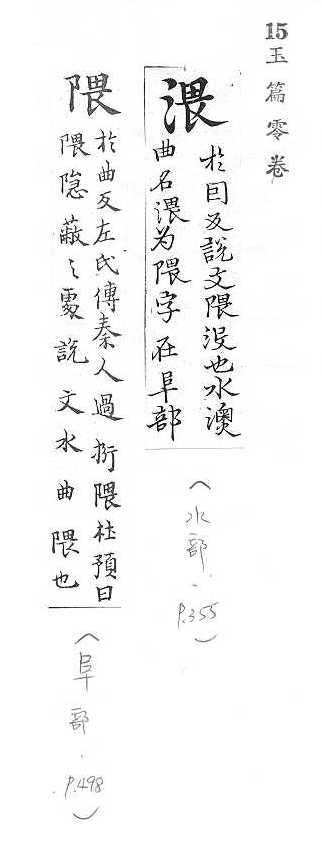 15玉篇零卷
渨
於囙反説文隈没也水澳
曲名渨为隈字在阜部
(水部、P.355)
隈
於曲反左氏傳秦人過析隈杜預曰
隈隐蔽〻䖏説文水曲隈也
(阜部、P.498)